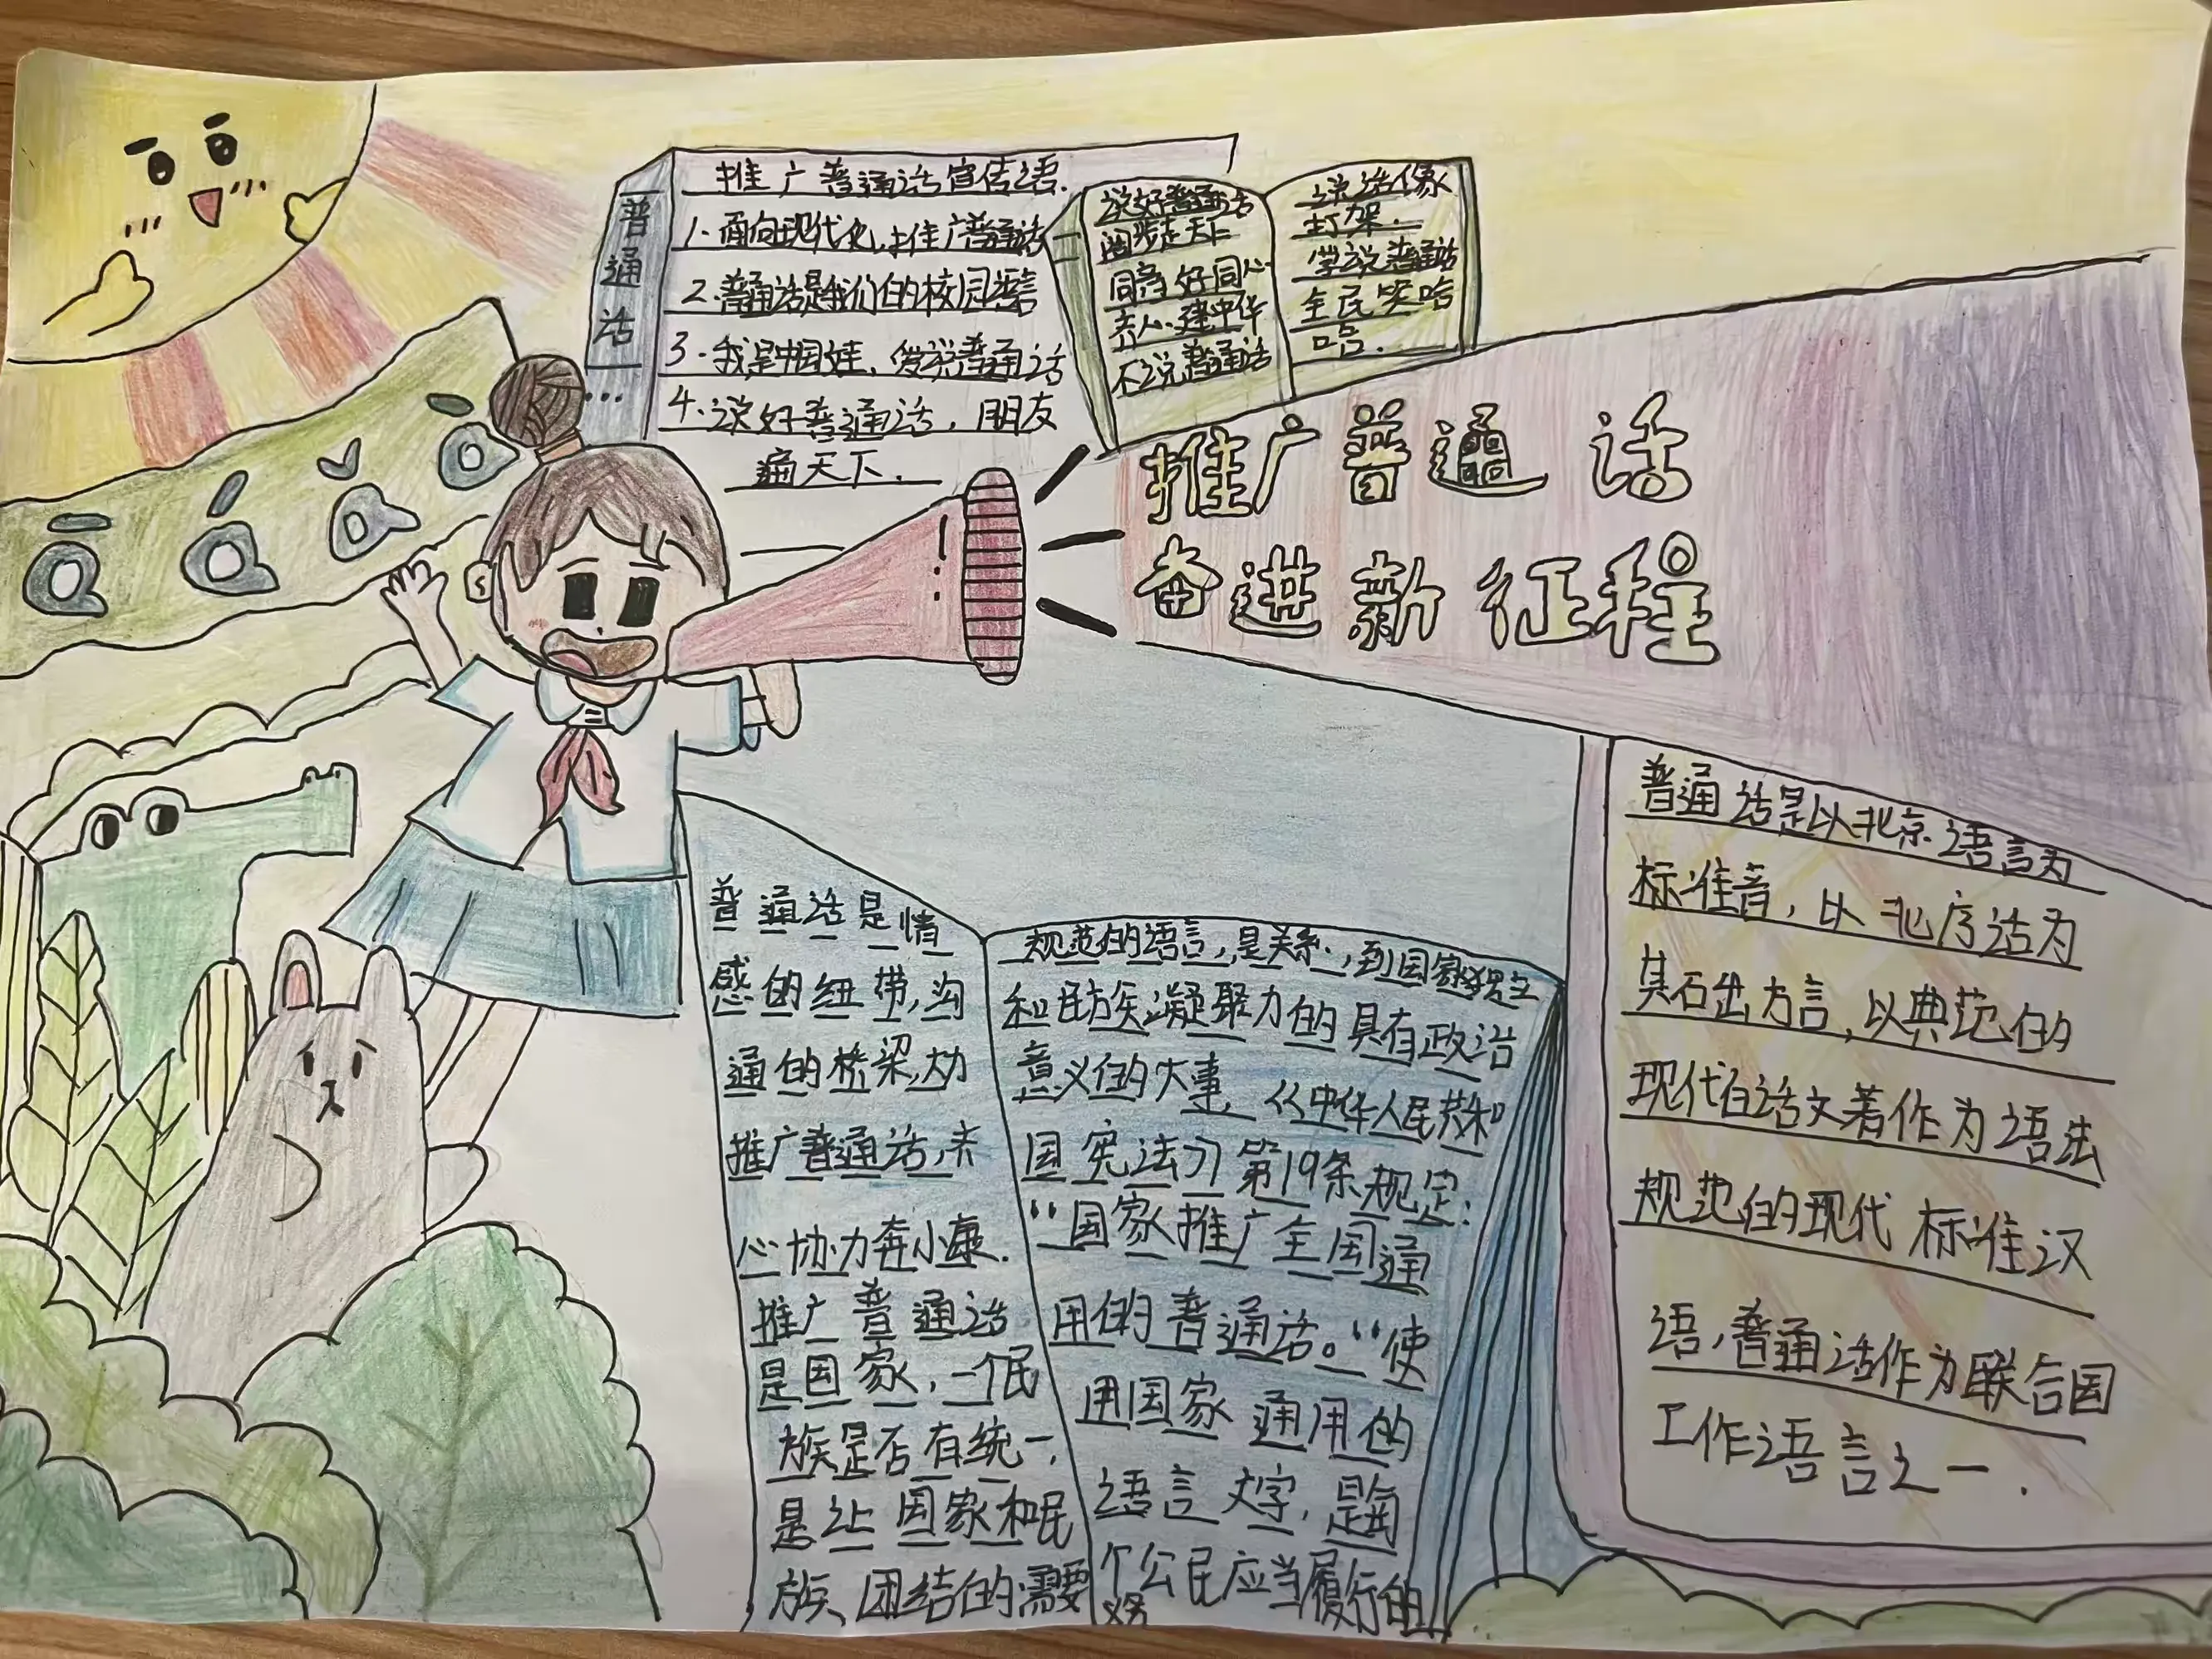 普通话…
推广普通话宣传语.
1.面向现代化,推广普通话
2.普通话是我们的校园语言
3.我是中国娃,爱说普通话
4.说好普通话,朋友
遍天下.
说好普通话
阔步走天下
同音好同心
齐心建中华
不说普通话
说话像
打架.
学说普通话
全民笑哈
哈.
推广普通话
奋进新征程
ā á ǎ à
普通话是情
感的纽带,沟
通的桥梁,大力
推广普通话,齐
心协力奔小康.
推广普通话
是国家,一个民
族是否有统一,
是让国家和民
族、团结的需要
规范的语言,是关系,到国家独立
和民族凝聚力的具有政治
意义的大事,《中华人民共和
国宪法》第19条规定:
“国家推广全国通
用的普通话。“使
用国家通用的
语言文字,是每
个公民应当履行的
义务
普通话是以北京语言为
标准音,以北方话为
基础方言,以典范的
现代白话文著作为语法
规范的现代标准汉
语,普通话作为联合国
工作语言之一.